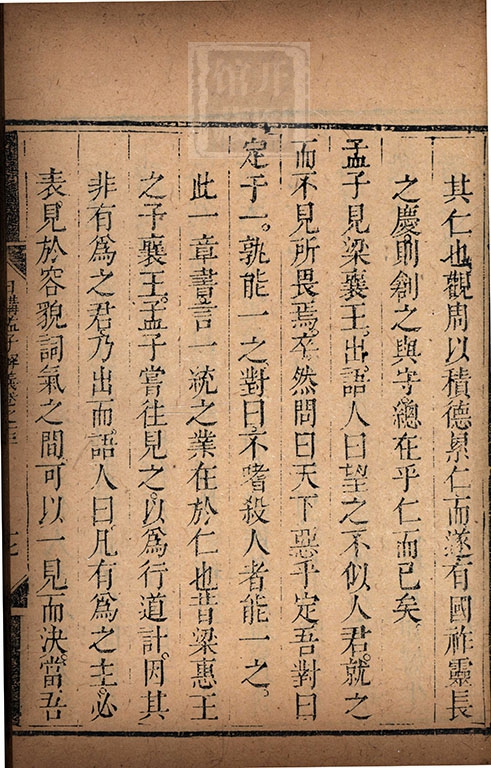 其仁也觀周以積德累仁而遂有國祚靈長
之慶則創之與守總在乎仁而已矣
孟子見梁襄王。出。語人曰望之不似人君。就之
而不見所畏焉。卒然問曰天下惡乎定吾對曰
定于一。孰能一之。對曰不嗜殺人者能一之。
此一章書言一統之業在於仁也昔梁惠王
之子襄王。孟子嘗往見之。以為行道計。因其
非有為之君。乃出而語人曰。凡有為之主。必
表見於容貌詞氣之間。可以一見而決。當吾
日講孟子解義卷之三